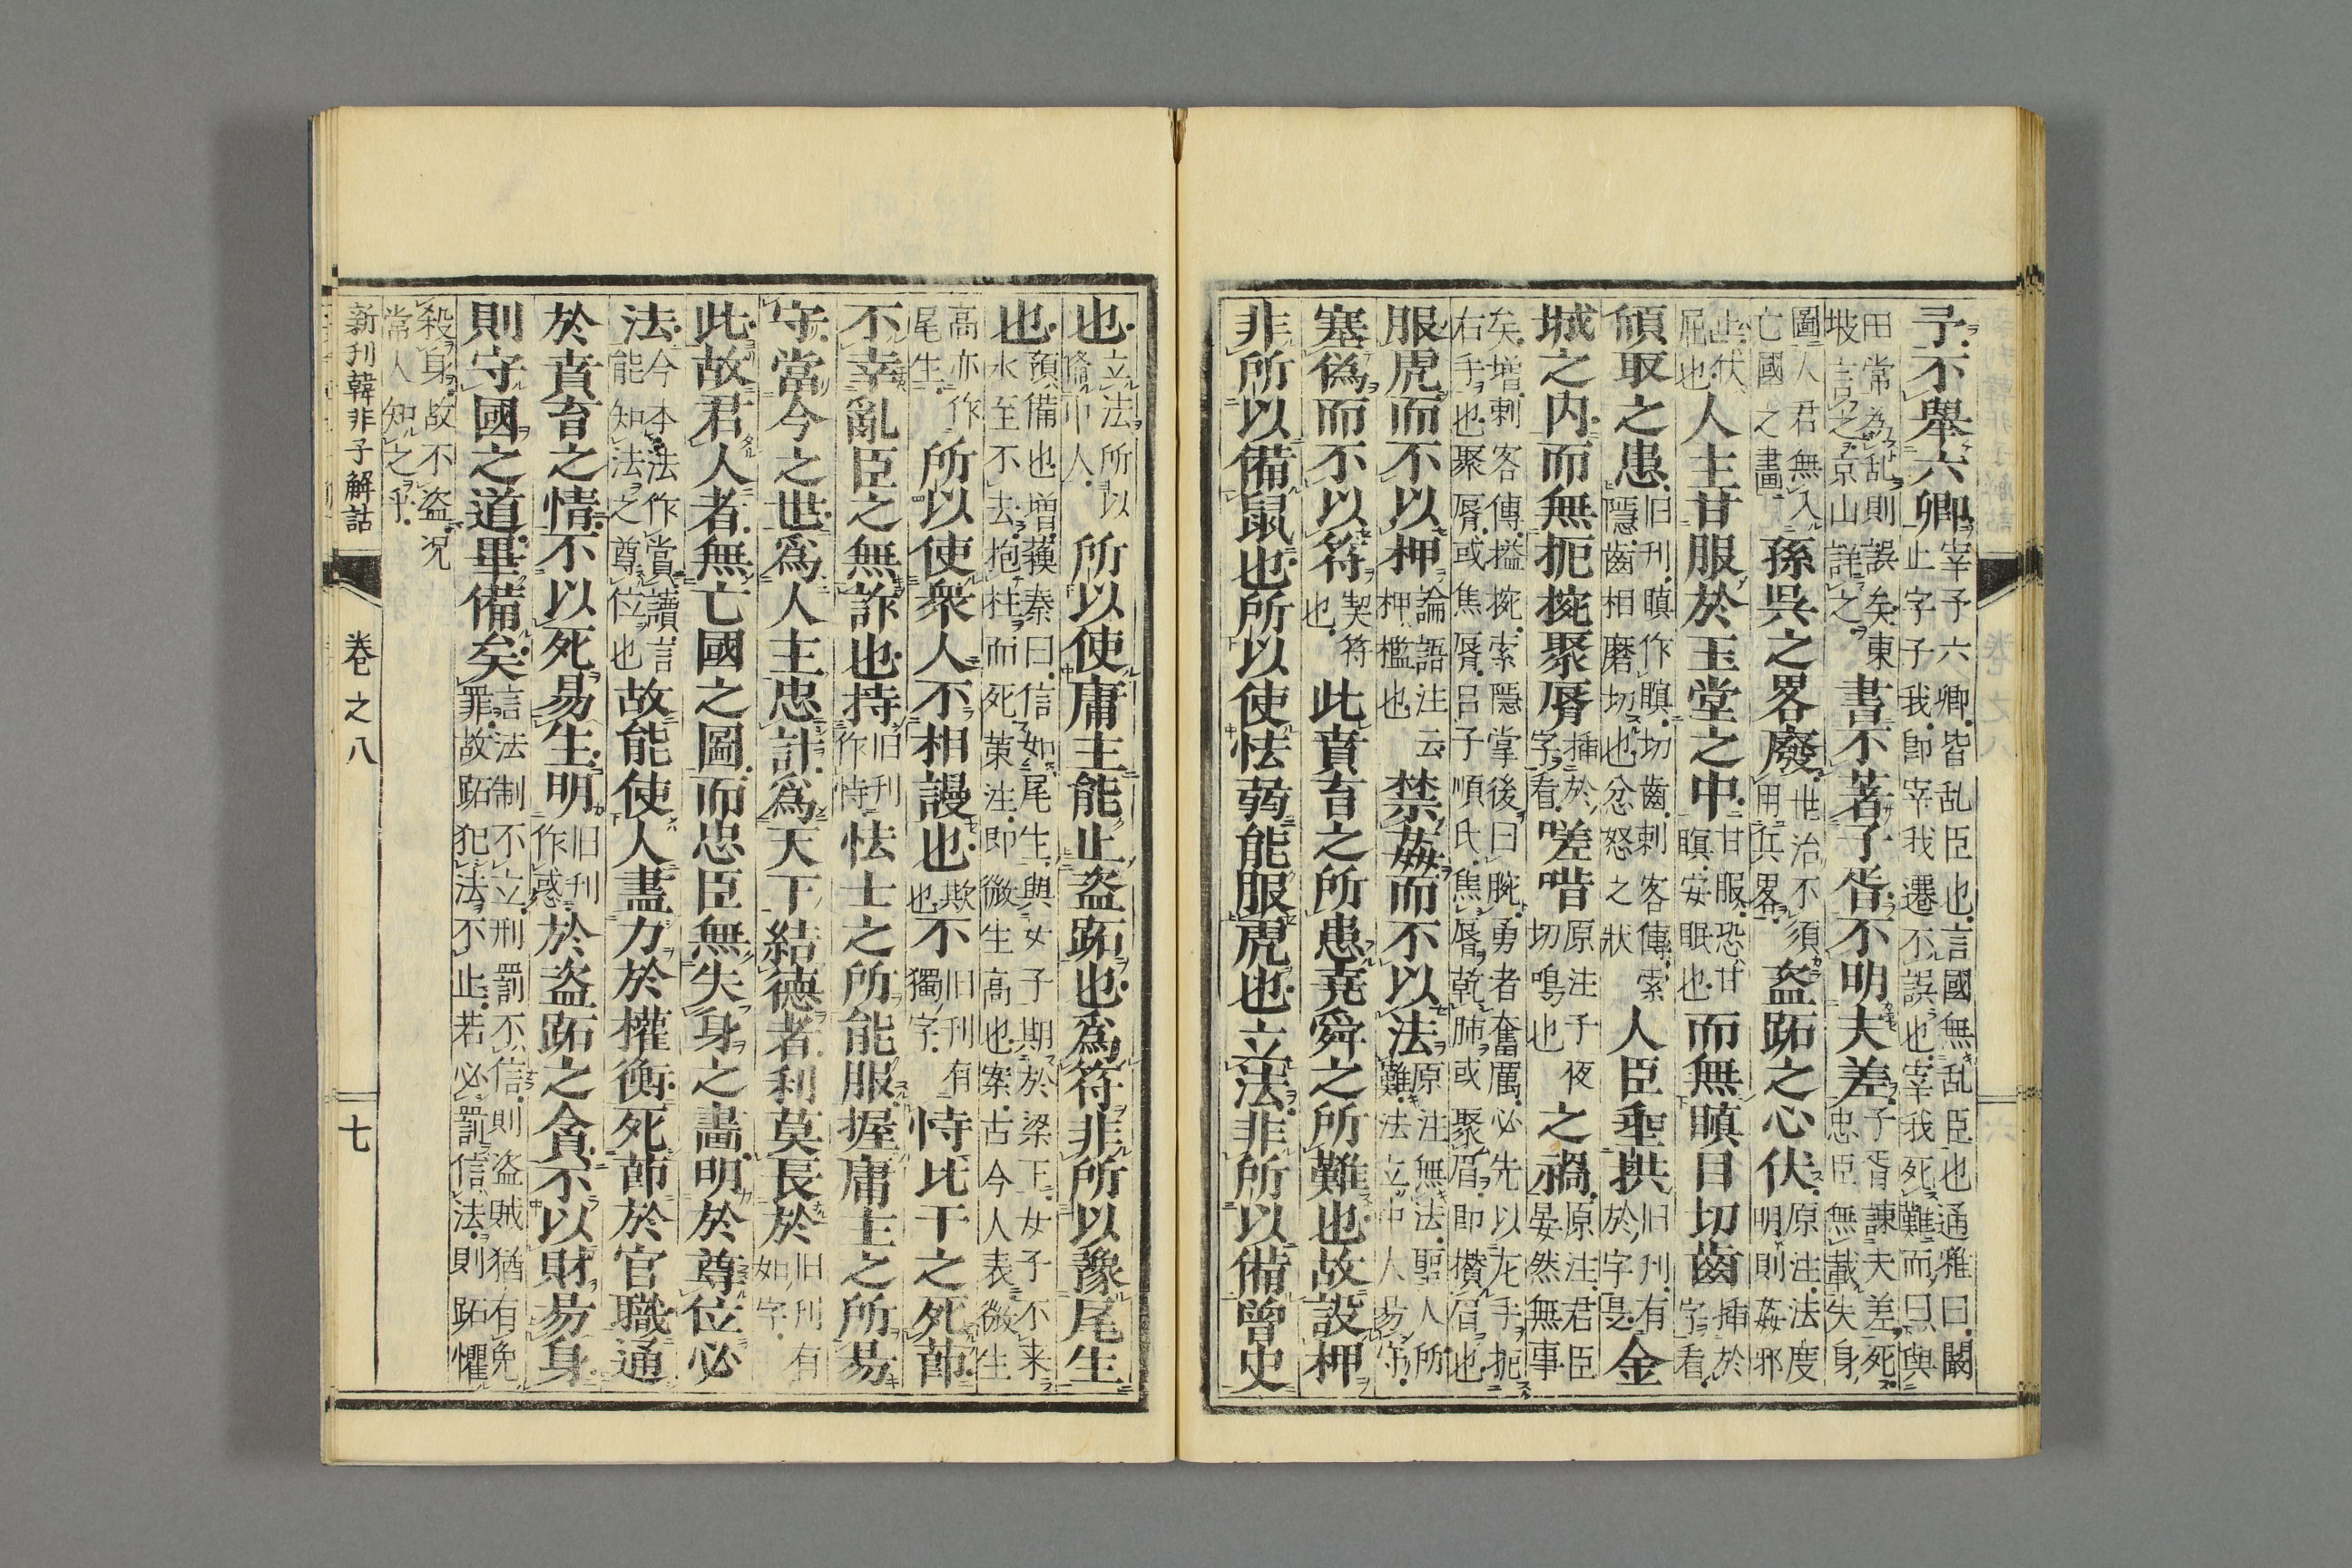 予不舉六卿宰予六卿皆乱臣也言國無乱臣也通雅曰闞止字子我卽宰我遷不誤也宰我死難而曰與
田常為乱則誤矣東坡言之京山詳之書不著子胥不明夫差子胥諌夫差死忠臣無載失身
圖人君無入亡國之畵孫吳之畧廢世治不須用兵畧盗跖之心伏原注法度明則姦邪
止伏屈也人主甘服於玉堂之中甘服恐甘瞑安眠也而無瞋目切齒挿於字看
傾取之患旧刋瞋作瞑切齒刺客傳索隱齒相磨切也忿怒之狀人臣垂拱旧刋有於字是金
城之内而無扼捥聚唇挿於字看嗟唶原注子夜切鳴也之禍原注君臣晏然無事
矣増刺客傳搤捥索隱掌後曰腕勇者奮厲必先以左手扼右手也聚唇或焦唇呂子順氏焦唇乾肺或聚眉即攅眉也
服虎而不以柙論語注云柙檻也禁姦而不以法原注無法聖人所難法立中人易守
塞偽而不以符契符也此賁育之所患堯舜之所難也故設柙
非所以備鼠也所以使怯弱能服虎也立法非所以備曾史
也立法所以脩中人所以使庸主能止盗跖也爲符非所以豫尾生
也預備也増蘓秦曰信如尾生與女子期於梁下女子不来水至不去抱柱而死策注即微生高也案古今人表微生
高亦作尾生所以使衆人不相謾也欺也不旧刋有獨字恃比干之死節
不幸亂臣之無詐也持旧刋作恃怯士之所能服握庸主之所易
守當今之世爲人主忠計爲天下結德者利莫長於旧刋有如字
此故君人者無亡國之圖而忠臣無失身之畵明於尊位必
法今本法作賞讀言能知法之尊位也故能使人盡力於權衡死節於官職通
於賁育之情不以死易生明旧刋作惑於盗跖之貪不以財易身
則守國之道畢備矣言法制不立刑罰不信則盗賊猶有免罪故跖犯法不止若必罰信法則跖懼
殺身故不盗况常人知之乎
新刋韓非子解詁 卷之八 七